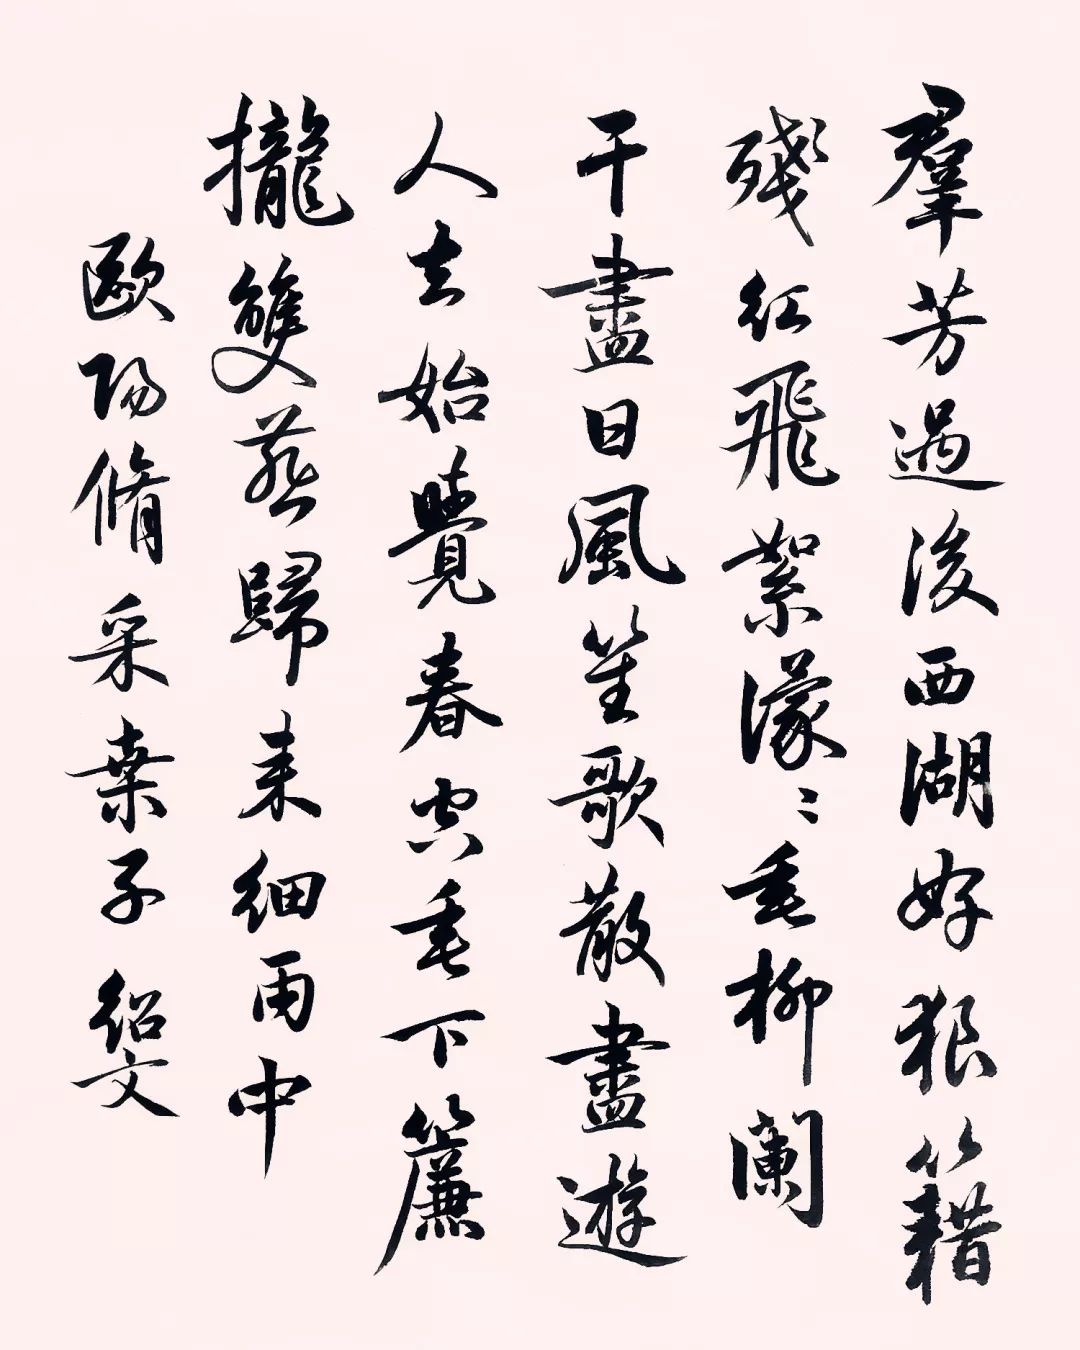 羣芳過後西湖好狼籍
殘紅飛絮濛〻垂柳闌
干盡日風笙歌散盡遊
人去始覺春空垂下簾
攏雙燕歸來細雨中
歐陽脩采桑子 紹文